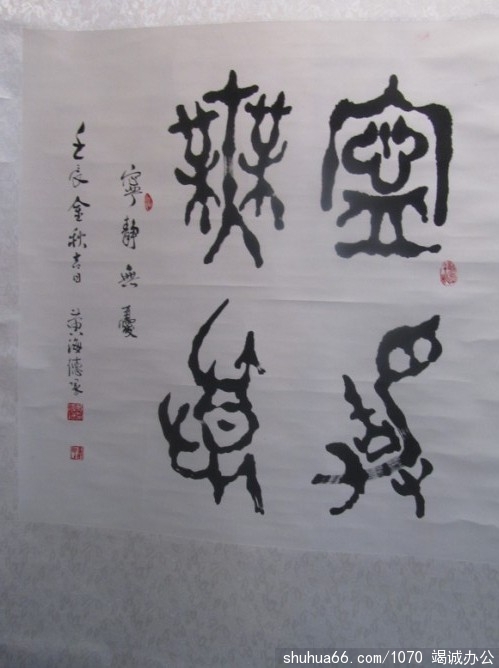 寧靜
無憂
寧靜無憂
壬辰金秋吉日 黄海德
shuhua66.com/1070 竭诚办公